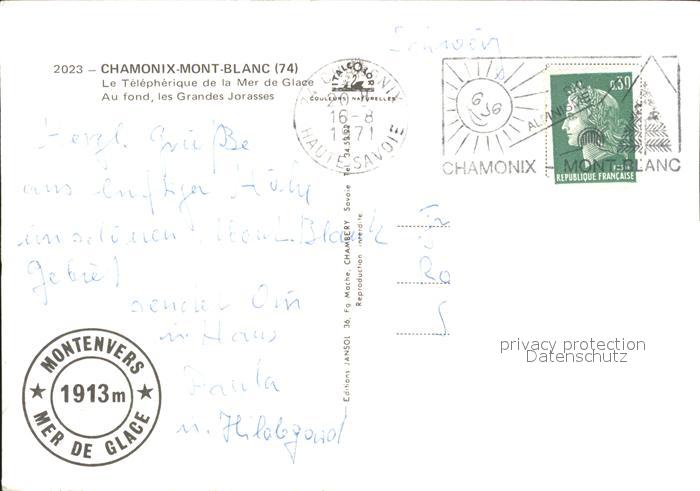 2023 – CHAMONIX-MONT-BLANC (74)
Le Téléphérique de la Mer de Glace
Au fond, les Grandes Jorasses
ITALCOLOR
COULEURS NATURELLES
16-8
1971
HAUTE-SAVOIE
ALPINISME
CHAMONIX – MONT-BLANC
0,30
REPUBLIQUE FRANÇAISE
Herzl. Grüße
aus luftiger Höhe
im schönen Mont-Blanc
Gebiet
sendet
u. Hans
Paula
u. Hildegard
Editions JANSOL 36, Fg Mache, CHAMBERY Savoie Tel. 34.59.92
Reproduction interdite
MONTENVERS
★ 1913 m ★
MER DE GLACE
privacy protection
Datenschutz